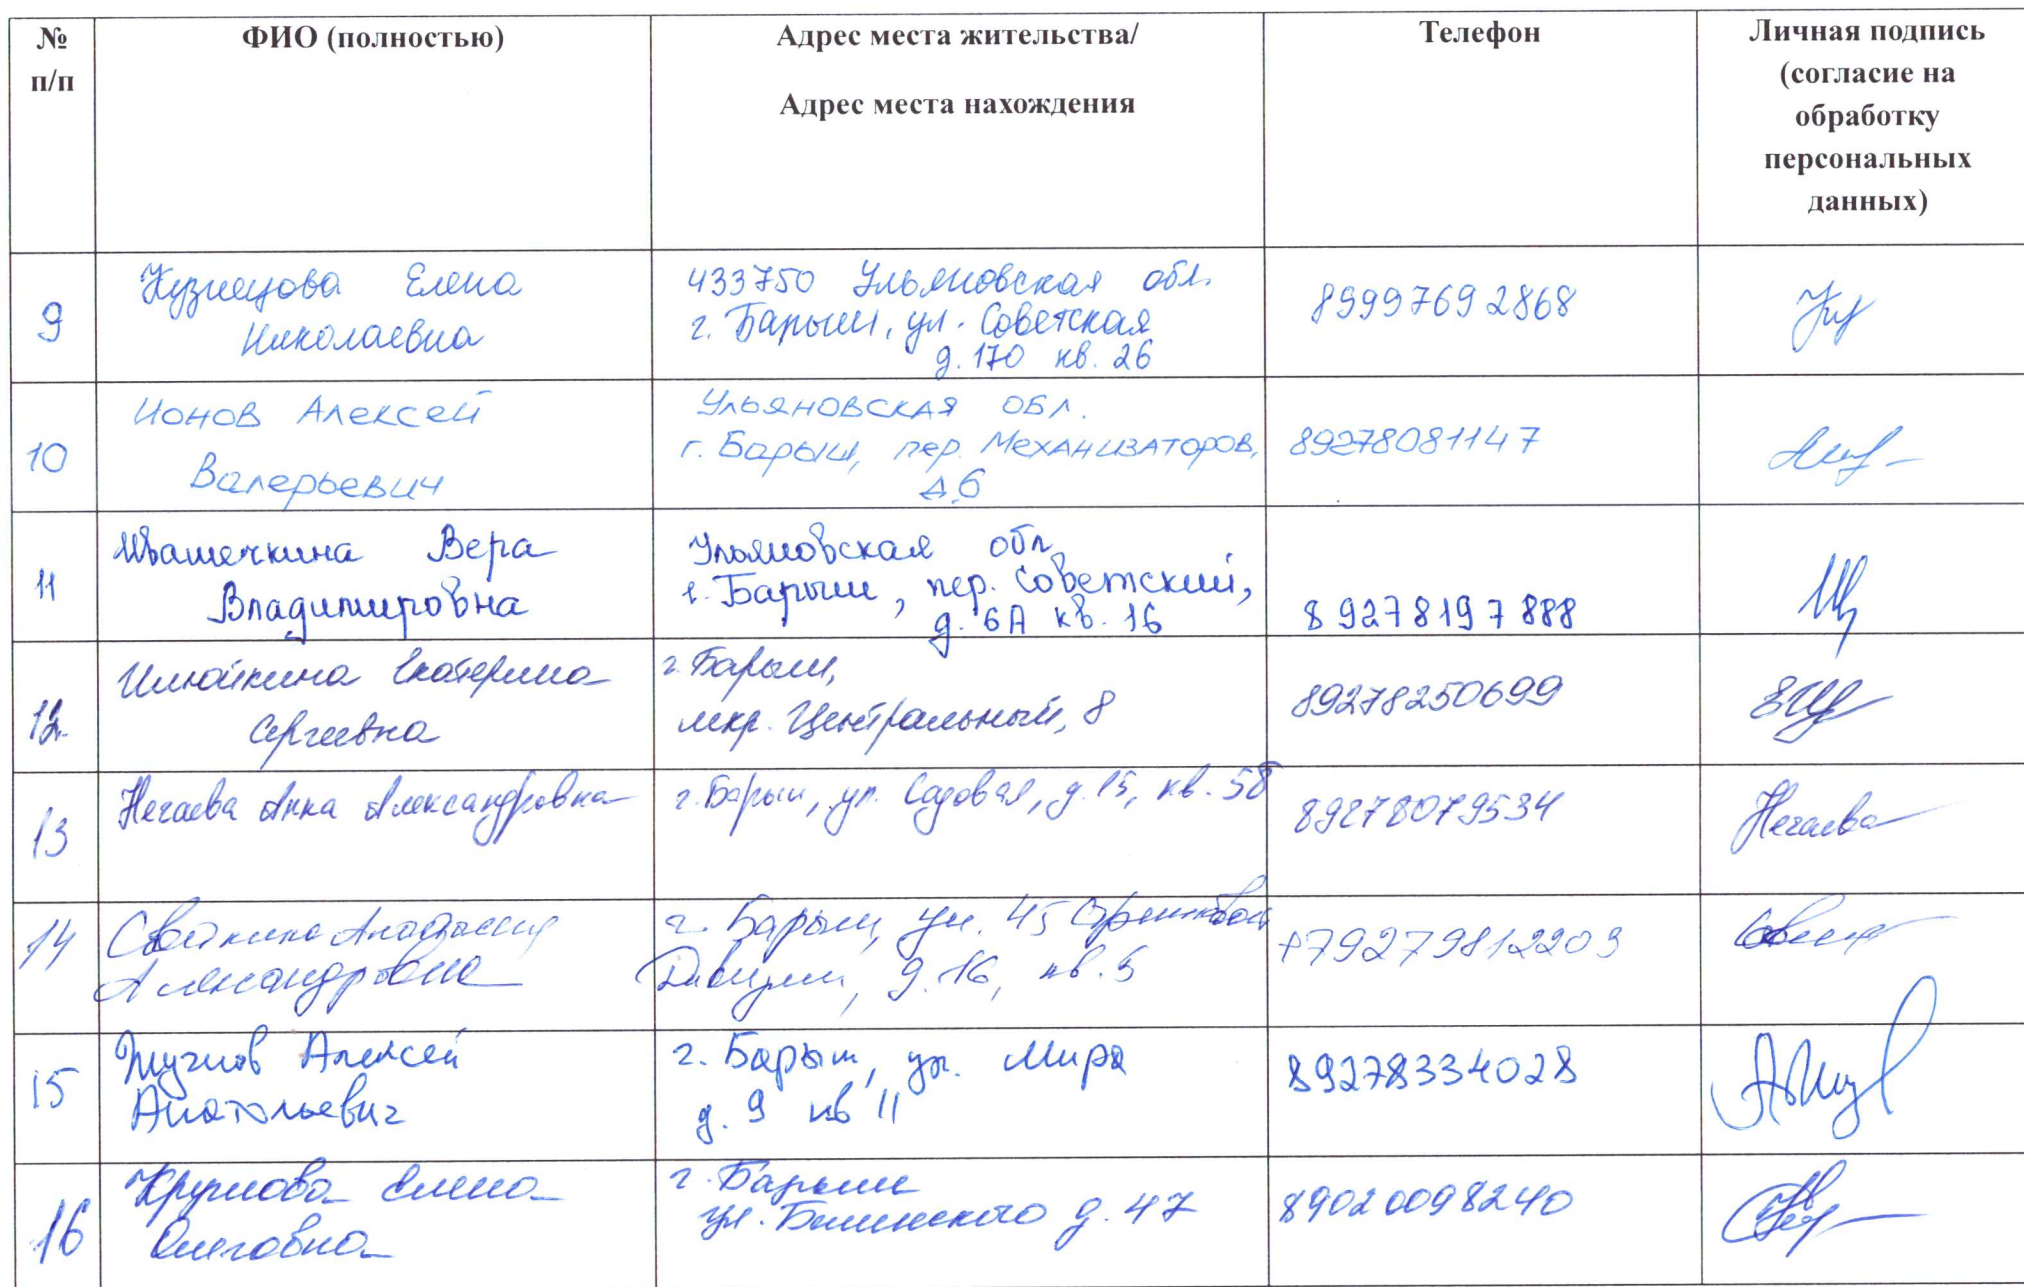 № п/п
ФИО (полностью)
Адрес места жительства/
Адрес места нахождения
Телефон
Личная подпись
(согласие на
обработку
персональных
данных)
9
Кузнецова Елена
Николаевна
433750 Ульяновская обл.
г. Барыш, ул. Советская
д. 170 кв. 26
89997692868
10
Ионов Алексей
Валерьевич
Ульяновская обл.
г. Барыш, пер. Механизаторов,
д.6
89278081147
11
Ивашечкина Вера
Владимировна
Ульяновская обл
г. Барыш, пер. Советский,
д. 6А кв. 16
89278197888
12.
Екатерина
Сергеевна
г. Барыш,
мкр. Центральный, 8
89278250699
13
Нечаева Анна Александровна
г. Барыш, ул. Садовая, д. 15, кв. 58
89278079534
Нечаева
14
Анастасия
Александровна
г. Барыш, ул. 45 Стрелковой
Дивизии, д. 16, кв. 5
+79279812203
15
Алексей
Анатольевич
г. Барыш, ул. Мира
д. 9 кв 11
89278334028
16
Елена
Олеговна
г. Барыш
ул. Белинского д. 47
89020098240